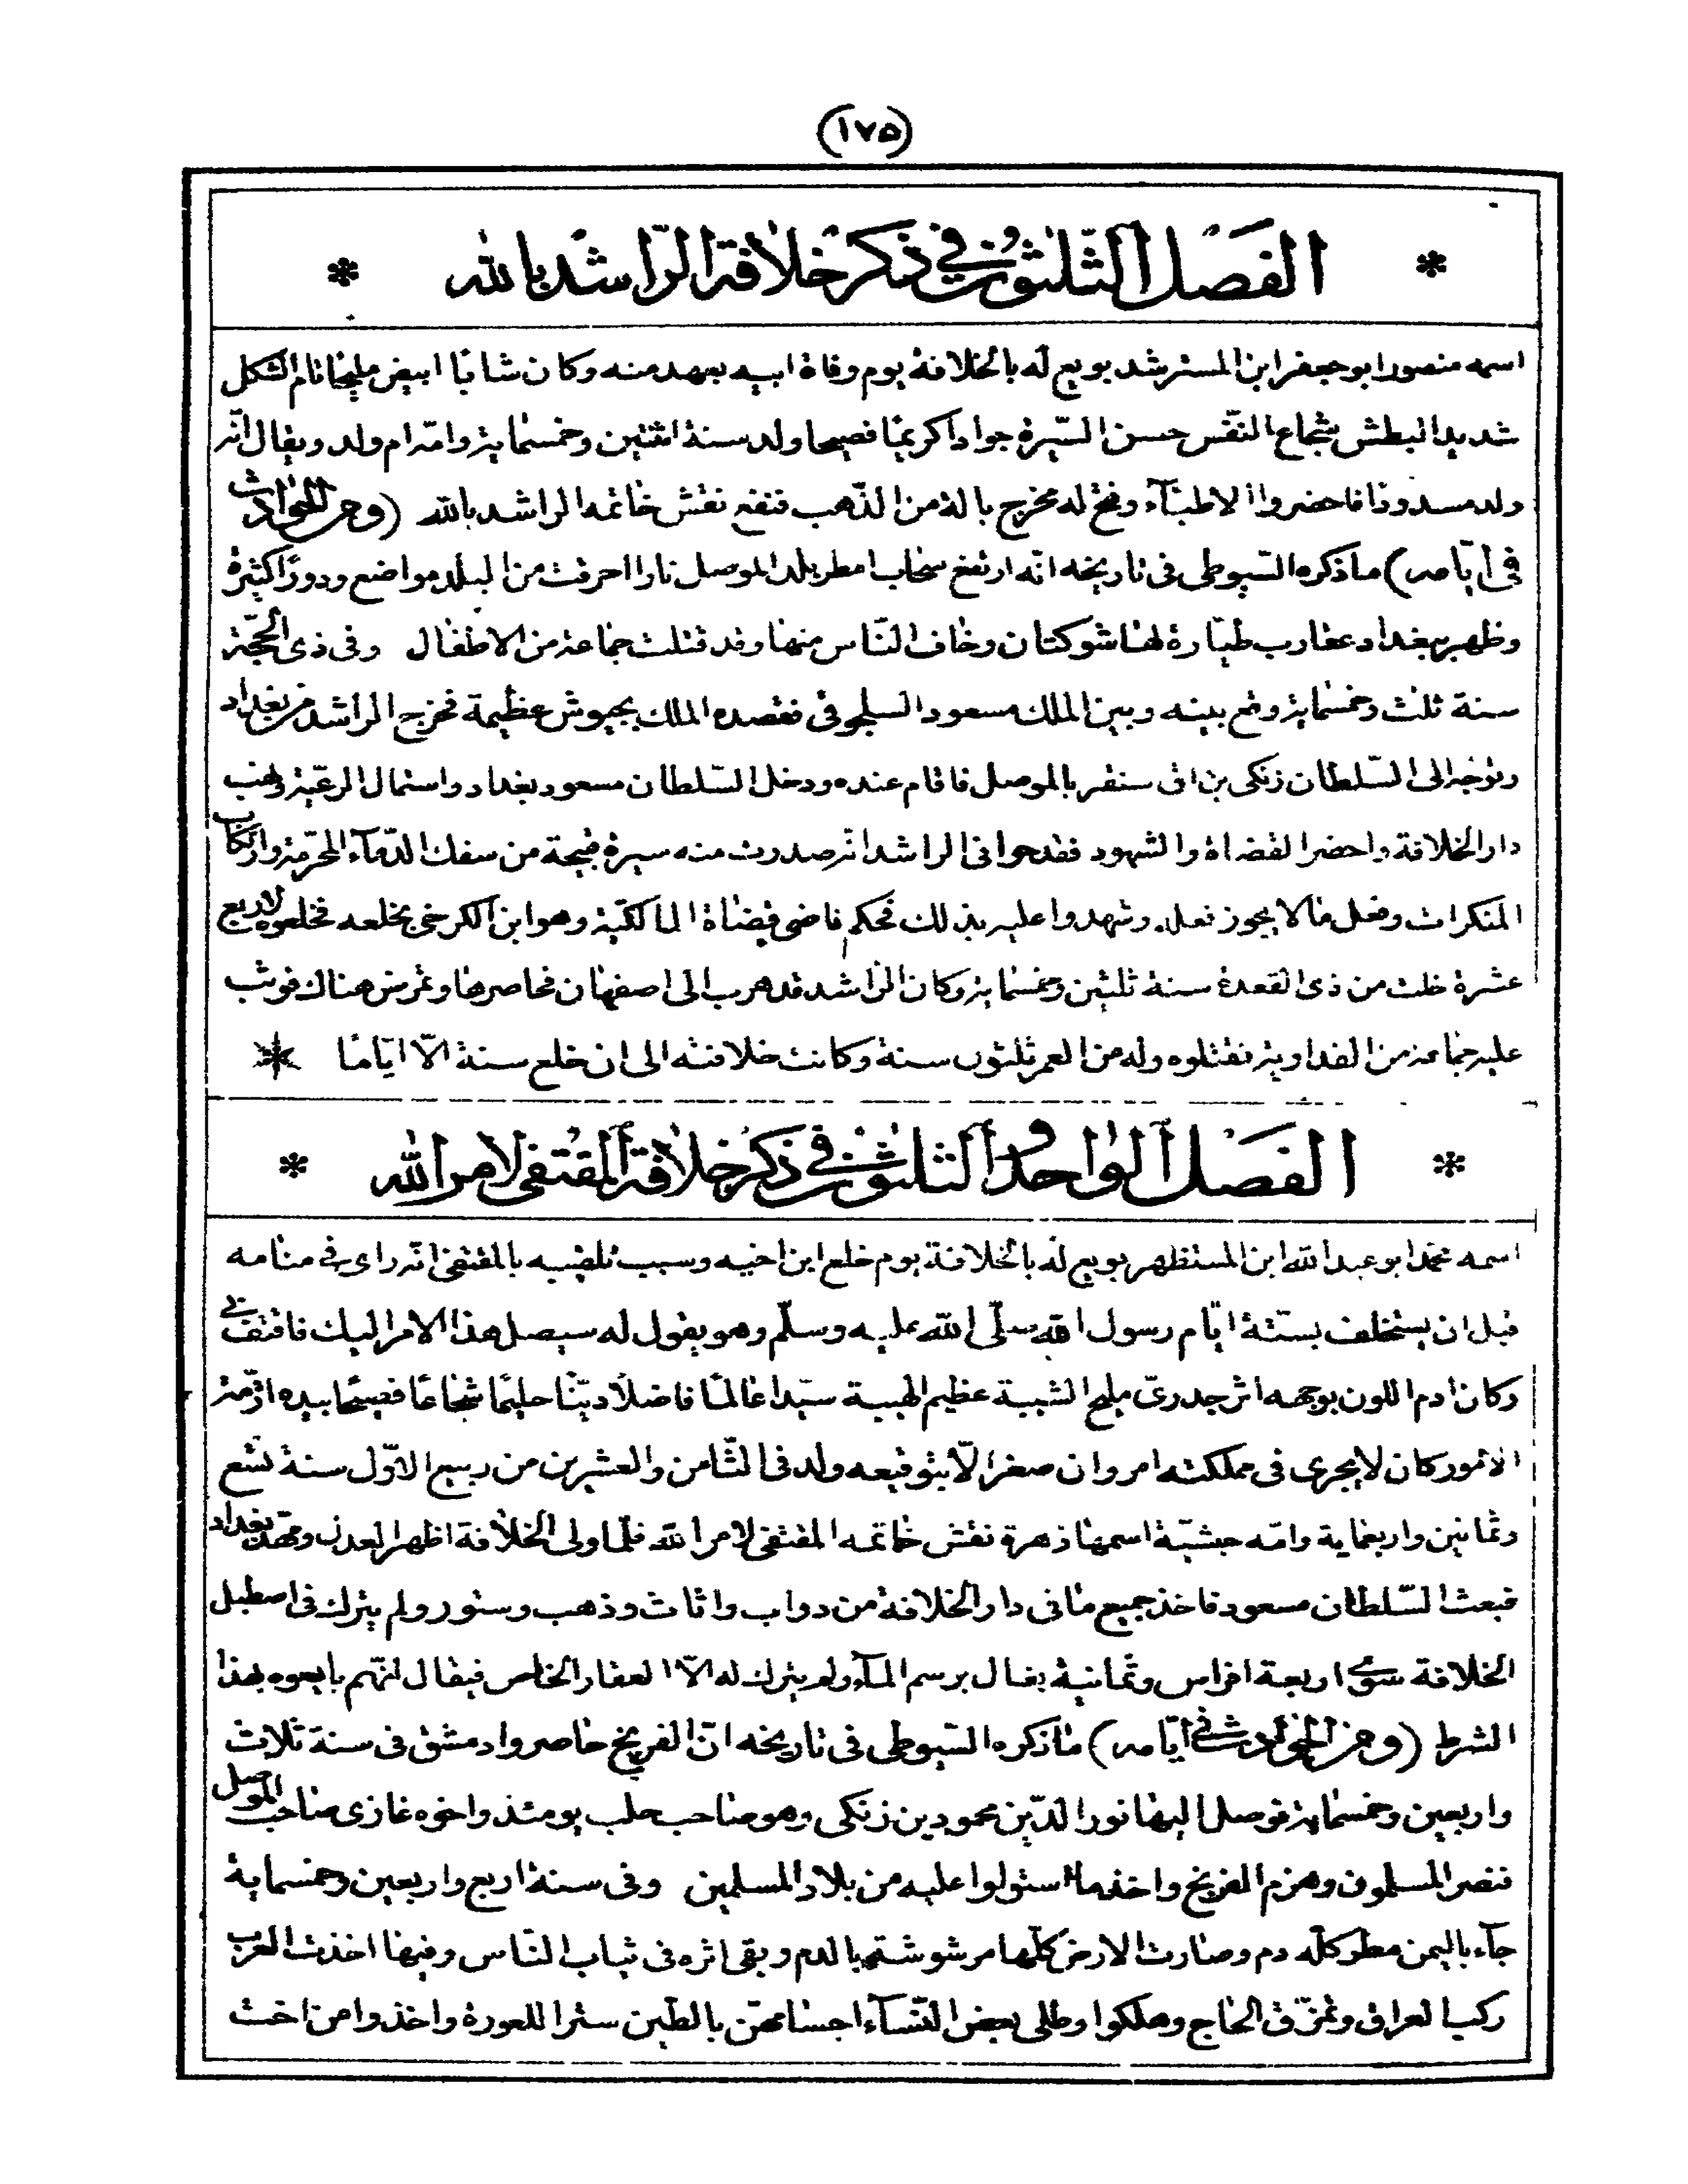 (١٧٥)
* الفصل الثلثون في ذكر خلافة الراشد بالله *
اسمه منصور ابو جعفر ابن المسترشد بويع له بالخلافة يوم وفاة ابيه بعهد منه وكان شابّا ابيض مليحا تام الشكل
شديد البطش شجاع النفس حسن السّيرة جوادا كريمًا فصيحا ولد سنة اثنتين وخمسماية وامّه ام ولد ويقال انّه
ولد مسدودا فاحضروا الاطبّآء وفتح له مخرج بالة من الذّهب فنفع نقش خاتمه الراشد بالله (ومن الحوادث
في ايّامه) ما ذكره السّيوطى فى تاريخه انّه ارتفع سحاب امطر بلد الموصل نارا احرقت من البلد مواضع ودورًا كثيرة
وظهر ببغداد عقارب طيّارة لها شوكتان وخاف النّاس منها وقد قتلت جماعة من الاطفال وفى ذى الحجّة
سنة ثلث وخمسماية وقع بينه وبين الملك مسعود السلجوقى فقصده الملك بجيوش عظيمة فخرج الراشد من بغداد
وتوجّه الى السّلطان زنكى بن اق سنقر بالموصل فاقام عنده ودخل السّلطان مسعود بغداد واستمال الرعيّة ونهب
دار الخلافة واحضر القضاة والشهود فقدحوا فى الراشد انّه صدرت منه سيرة قبيحة من سفك الدّمآء المحرّمة وارتكاب
المنكرات وفعل ما لا يجوز فعله وشهدوا عليه بذلك فحكم قاضى قضاة المالكيّة وهو ابن الكرخى بخلعه فخلعوه لاربع
عشرة خلت من ذى القعدة سنة ثلثين وخمسماية وكان الرّاشد قد هرب الى اصفهان فحاصرها وتمرض هناك فوثب
عليه جماعة من الفداوية فقتلوه وله من العمر ثلثون سنة وكانت خلافته الى ان خلع سنة الّا ايّامًا *
* الفصل الواحد والثلثون في ذكر خلافة المقتفى لامر الله *
اسمه محمّد ابو عبد الله ابن المستظهر بويع له بالخلافة يوم خلع ابن اخيه وسبب تلقيبه بالمقتفى انّه راى في منامه
قبل ان يستخلف بستّة ايّام رسول الله صلّى الله عليه وسلّم وهو يقول له سيصل هذا الامر اليك فاقتف بي
وكان ادم اللون بوجهه اثر جدرىّ مليح الشيبة عظيم الهيبة سيّدا عالمًا فاضلًا ديّنًا حليمًا شجاعًا فصيحًا بيده ازمّة
الامور كان لا يجرى فى مملكته امر وان صغر الّا بتوقيعه ولد فى الثّامن والعشرين من ربيع الاوّل سنة تسع
وثمانين واربعماية وامّه حبشيّة اسمها زهرة نقش خاتمه المقتفى لامر الله فلمّا ولى الخلافة اظهر العدل ومهّد بغداد
فبعث السّلطان مسعود فاخذ جميع ما فى دار الخلافة من دواب واثاث وذهب وستور ولم يترك فى اصطبل
الخلافة سوى اربعة افراس وثمانية بغال برسم المآء ولم يترك له الّا العقار الخاص فيقال انّهم بايعوه بهذا
الشرط (ومن الحوادث في ايّامه) ما ذكره السّيوطى فى تاريخه انّ الفرنج حاصروا دمشق فى سنة ثلاث
واربعين وخمسماية فوصل اليها نور الدّين محمود بن زنكى وهو صاحب حلب يومئذ واخوه غازى صاحب الموصل
فنصر المسلمون وهزم الفرنج واخذ ما استولوا عليه من بلاد المسلمين وفى سنة اربع واربعين وخمسماية
جآء باليمن مطر كلّه دم وصارت الارض كلّها مرشوشة بالدم وبقى اثره فى ثياب النّاس وفيها اخذت العرب
ركب العراق وتمزّق الحاج وهلكوا وطلى بعض النّسآء اجسامهنّ بالطّين سترا للعورة واخذوا من اخت